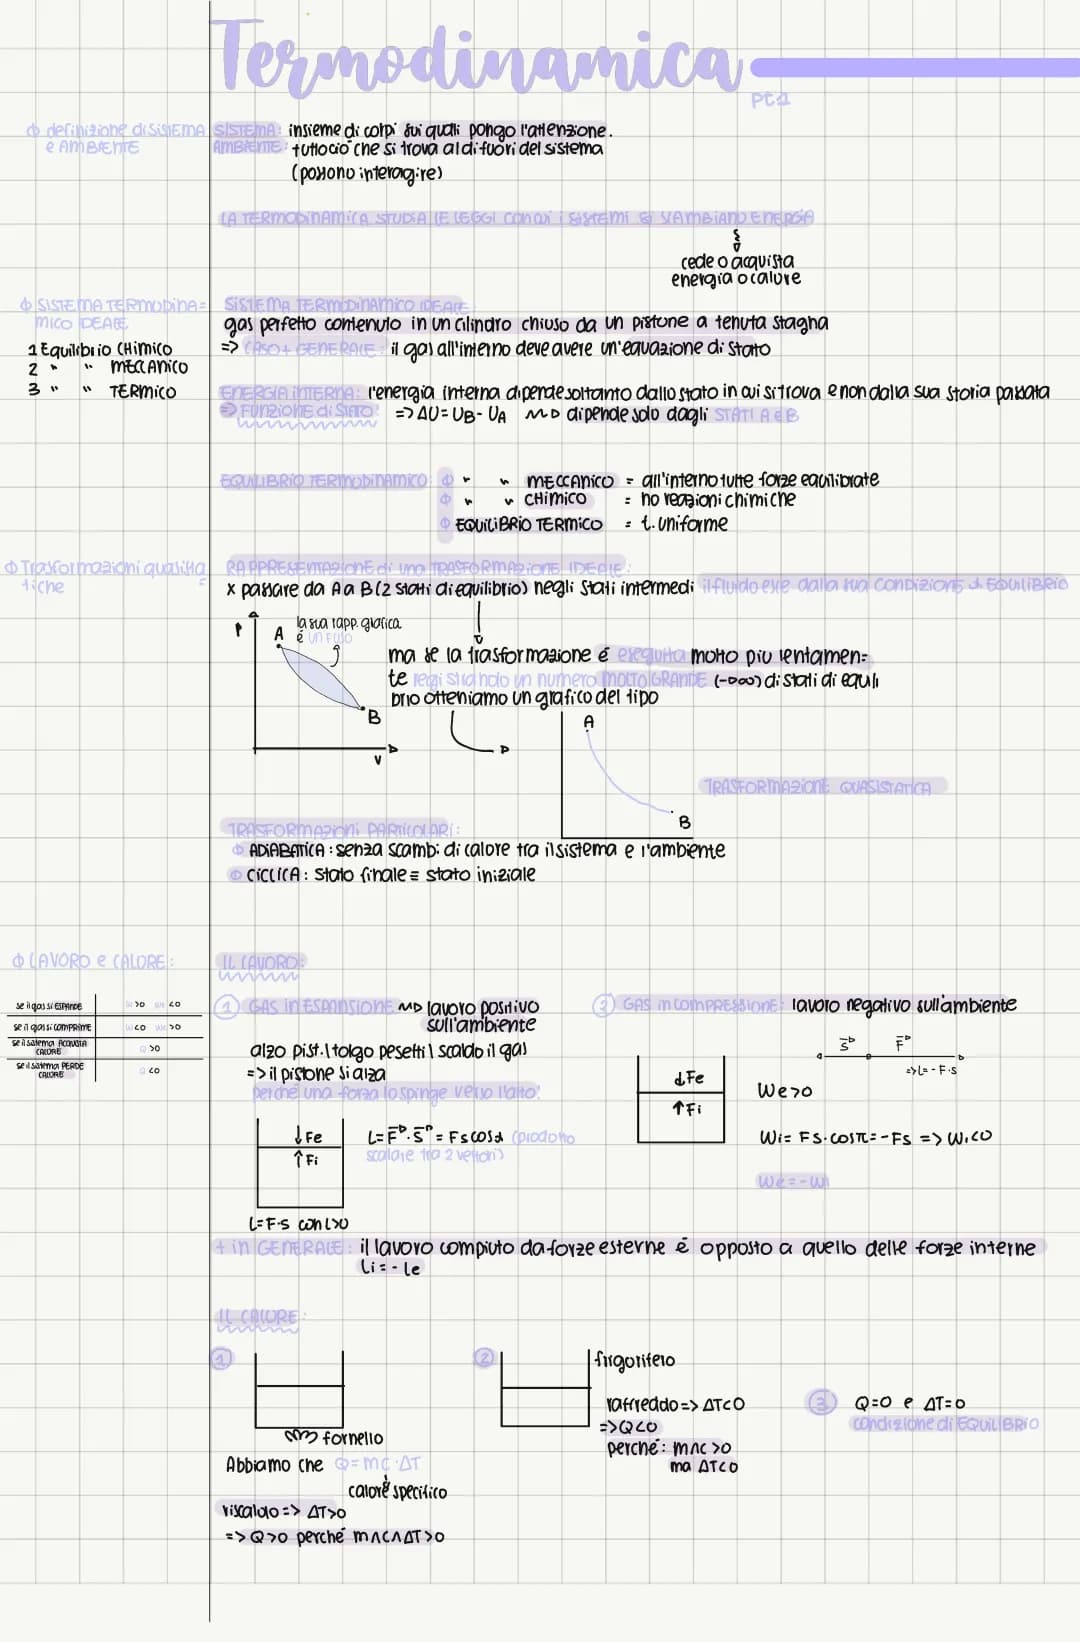 Termodinamica
pt1
definizione di SISTEMA e AMBIENTE
SISTEMA: insieme di corpi sui quali pongo l'attenzione.
AMBIENTE: tutto ciò che si trova al di fuori del sistema
(possono interagire)
LA TERMODINAMICA STUDIA LE LEGGI CON CUI I SISTEMI SI SCAMBIANO ENERGIA
cede o acquista
energia o calore
SISTEMA TERMODINA=
MICO IDEALE
1 Equilibrio CHIMICO
2 " " MECCANICO
3 " " TERMICO
SISTEMA TERMODINAMICO IDEALE
gas perfetto contenuto in un cilindro chiuso da un pistone a tenuta stagna
=> CASO + GENERALE: il gas all'interno deve avere un'equazione di stato
ENERGIA INTERNA: l'energia interna dipende soltanto dallo stato in cui si trova e non dalla sua storia passata
=> FUNZIONE di STATO: => ΔU = UB - UA dipende solo dagli STATI A e B
EQUILIBRIO TERMODINAMICO: " " MECCANICO = all'interno tutte forze equilibrate
" " CHIMICO = no reazioni chimiche
EQUILIBRIO TERMICO = t. uniforme
Trasformazioni qualita
tiche =
RAPPRESENTAZIONE di una TRASFORMAZIONE IDEALE:
x passare da A a B (2 stati di equilibrio) negli stati intermedi il fluido esce dalla sua CONDIZIONE di EQUILIBRIO
P
A
la sua rapp. grafica
è UN FUSO
B
V
ma se la trasformazione è eseguita molto più lentamen=
te registrando un numero MOLTO GRANDE (→∞) di stati di equili
brio otteniamo un grafico del tipo
A
B
TRASFORMAZIONE QUASISTATICA
TRASFORMAZIONI PARTICOLARI:
ADIABATICA: senza scambi di calore tra il sistema e l'ambiente
CICLICA: stato finale ≡ stato iniziale
LAVORO e CALORE:
se il gas si ESPANDE Wi >0 We <0
se il gas si COMPRIME Wi <0 We >0
se il sistema ACQUISTA
CALORE Q >0
se il sistema PERDE
CALORE Q <0
IL LAVORO:
1 GAS in ESPANSIONE lavoro positivo
sull'ambiente
alzo pist. \ tolgo pesetti \ scaldo il gas
=> il pistone si alza
perché una forza lo spinge verso l'alto:
↓Fe
↑Fi
L = F→·S→ = Fs cosα (prodotto
scalare tra 2 vettori)
L=F·s con L>0
2 GAS in COMPRESSIONE: lavoro negativo sull'ambiente
S→ F→
=> L= -F·s
↓Fe
↑Fi
We>0
Wi = FS·cosπ = -Fs => Wi<0
We = -Wi
+ in GENERALE: il lavoro compiuto da forze esterne è opposto a quello delle forze interne
Li = - Le
IL CALORE:
1
fornello
Abbiamo che Q=mc·ΔT
calore specifico
riscaldo => ΔT>0
=> Q>0 perché m∧c∧ΔT>0
2
frigorifero
raffreddo => ΔT<0
=> Q<0
perché: m∧c >0
ma ΔT<0
3 Q=0 e ΔT=0
condizione di EQUILIBRIO